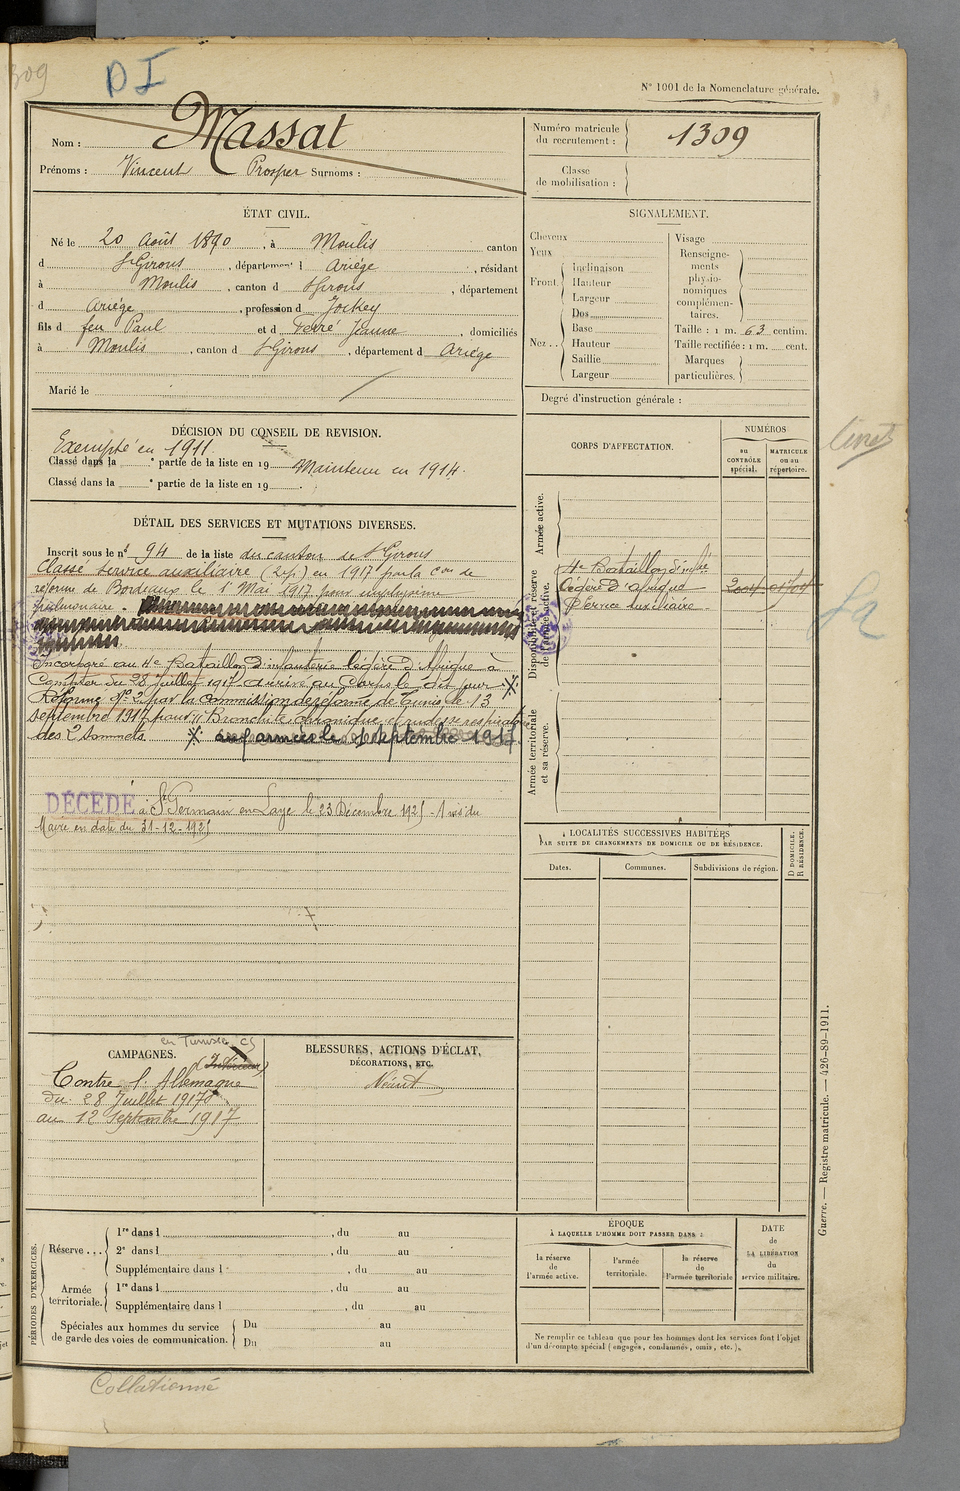 309
D I
N° 1001 de la Nomenclature générale.
Nom : Massat
Prénoms : Vincent Prosper Surnoms :
Numéro matricule du recrutement : 1309
Classe de mobilisation :
ÉTAT CIVIL.
Né le 20 Août 1890, à Moulis canton
d St Girons, département d Ariége, résidant
à Moulis, canton d St Girons, département
d Ariége, profession d Jockey
fils d feu Paul et d Jeanne, domiciliés
à Moulis, canton d St Girons, département d Ariége
Marié le
SIGNALEMENT.
Cheveux
Yeux
Front.
Inclinaison
Hauteur
Largeur
Nez..
Dos
Base
Hauteur
Saillie
Largeur
Visage
Renseignements physionomiques complémentaires.
Taille : 1 m. 63 centim.
Taille rectifiée : 1 m. cent.
Marques particulières.
Degré d'instruction générale :
DÉCISION DU CONSEIL DE REVISION.
Exempté en 1911.
Classé dans la e partie de la liste en 19 Maintenu en 1914.
Classé dans la e partie de la liste en 19 .
CORPS D'AFFECTATION.
NUMÉROS
au CONTRÔLE spécial.
MATRICULE ou au répertoire.
Armée active.
Disponibilité et réserve de l'armée active.
4e Bataillon d'inftie
légère d'Afrique
Service auxiliaire
Armée territoriale et sa réserve.
DÉTAIL DES SERVICES ET MUTATIONS DIVERSES.
Inscrit sous le n° 94 de la liste du canton de St Girons
Classé service auxiliaire (2.p) en 1917 par la Con de
réforme de Bordeaux le 1er Mai 1917 pour emphysème
pulmonaire.
Incorporé au 4e Bataillon d'infanterie légère d'Afrique à
Compter du 28 Juillet 1917 arrivé au Corps le dit jour
Réformé N° 2 par la Commission de réforme de Tunis le 13
septembre 1917 pour "Bronchite chronique, et rudesse respiratoire
des 2 sommets. aux armées le septembre 1917
DÉCÉDÉ à St Germain en Laye le 23 Décembre 1925 - Avis du
Maire en date du 31-12-1925
LOCALITÉS SUCCESSIVES HABITÉES
PAR SUITE DE CHANGEMENTS DE DOMICILE OU DE RÉSIDENCE.
Dates.
Communes.
Subdivisions de région.
D DOMICILE.
R RÉSIDENCE.
CAMPAGNES.
en Tunisie CS
(Intérieur)
Contre l'Allemagne
du 28 Juillet 1917
au 12 Septembre 1917
BLESSURES, ACTIONS D'ÉCLAT,
DÉCORATIONS, ETC.
Néant
PÉRIODES D'EXERCICES.
Réserve...
1re dans l , du au
2e dans l , du au
Supplémentaire dans l , du au
Armée territoriale.
1re dans l , du au
Supplémentaire dans l , du au
Spéciales aux hommes du service de garde des voies de communication.
Du au
Du au
ÉPOQUE
À LAQUELLE L'HOMME DOIT PASSER DANS :
la réserve de l'armée active.
l'armée territoriale.
la réserve de l'armée territoriale
DATE de LA LIBÉRATION du service militaire.
Ne remplir ce tableau que pour les hommes dont les services font l'objet
d'un décompte spécial (engagés, condamnés, omis, etc.).
Guerre. — Registre matricule. — 426-89-1911.
Collationné